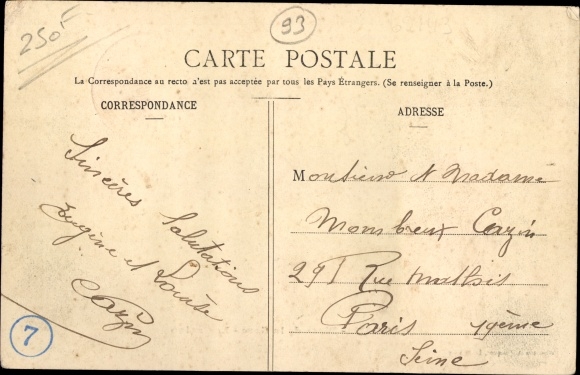 250f
93
CARTE POSTALE
La Correspondance au recto n'est pas acceptée par tous les Pays Étrangers. (Se renseigner à la Poste.)
CORRESPONDANCE
Sincères Salutations
Eugène et
Cazin
7
ADRESSE
Monsieur et Madame
Cazin
29 Rue Mathis
Paris 19ème
Seine